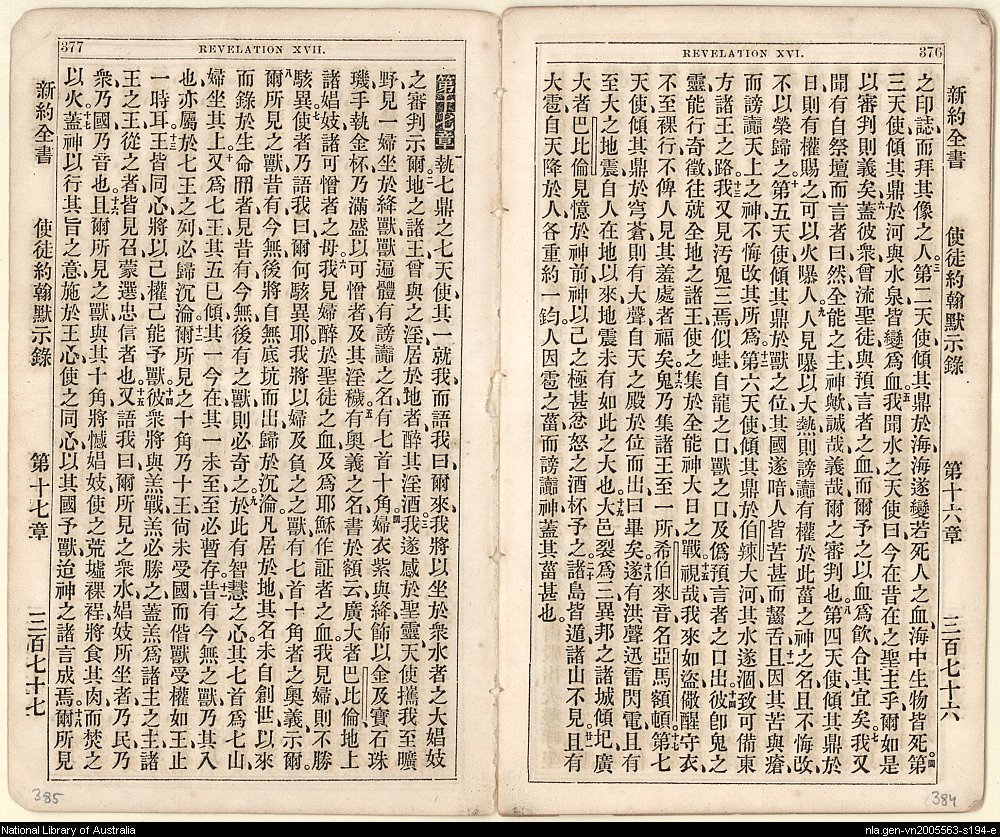 376
REVELATION XVI.
新約全書 使徒約翰默示錄 第十六章 三百七十六
之印誌而拜其像之人。三第二天使傾其鼎於海、海遂變若死人之血、海中生物皆死。四第
三天使傾其鼎於河與水泉、皆變爲血。五我聞水之天使曰、今在昔在之聖主乎、爾如是
以審判則義矣。六蓋彼衆曾流聖徒與預言者之血、而爾予之以血爲飲、合其宜矣。七我又
聞有自祭壇而言者曰、然、全能之主神歟、誠哉義哉爾之審判也。八第四天使傾其鼎於
日、則有權賜之可以火曝人。九人見曝以大熱、則謗讟有權於此菑之神之名、且不悔改、
不以榮歸之。十第五天使傾其鼎於獸之位、其國遂喑、人皆苦甚而齧舌。十一且因其苦與瘡、
而謗讟天上之神、不悔改其所爲。十二第六天使傾其鼎於伯竦大河、其水遂涸、致可備東
方諸王之路。十三我又見汚鬼三焉似蛙、自龍之口獸之口及僞預言者之口出。十四彼卽鬼之
靈、能行奇徵、往就全地之諸王、使之集於全能神大日之戰。十五視哉我來如盜、儆醒守衣、
不至裸行、不俾人見其羞處者福矣。十六鬼乃集諸王至一所、希伯來音名亞馬額頓。十七第七
天使傾其鼎於穹蒼、則有大聲自天之殿於位而出曰、畢矣。十八遂有洪聲迅雷閃電、且有
至大之地震、自人在地以來、地震未有如此之大也。十九大邑裂爲三、異邦之諸城傾圯、廣
大者巴比倫見憶於神前、神以己之極甚忿怒之酒杯予之。二十諸島皆遁、諸山不見。廿一且有
大雹自天降於人、各重約一鈞、人因雹之菑而謗讟神、蓋其菑甚也。
384
377
REVELATION XVII.
第十七章 一執七鼎之七天使、其一就我而語我曰、爾來、我將以坐於衆水者之大娼妓
之審判示爾。二地之諸王曾與之淫、居於地者醉其淫酒。三我遂感於聖靈、天使攜我至曠
野、見一婦坐於絳獸、獸遍體有謗讟之名、有七首十角。四婦衣紫與絳、飾以金及寶石珠
璣、手執金杯、乃滿盛以可憎者及其淫穢。五有奧義之名書於額云、廣大者巴比倫、地上
諸娼妓諸可憎者之母。六我見婦醉於聖徒之血、及爲耶穌作証者之血、我見婦則不勝
駭異。七使者乃語我曰、爾何駭異耶、我將以婦及負之之獸有七首十角者之奧義、示爾。
八爾所見之獸、昔有今無、後將自無底坑而出歸於沉淪、凡居於地、其名未自創世以來
而錄於生命冊者、見昔有今無後有之獸、則必奇之。九於此有智慧之心、其七首爲七山、
婦坐其上。十又爲七王、其五已傾、其一今在、其一未至、至必暫存。十一昔有今無之獸、乃其八
也、亦屬於七王之列、必歸沉淪。十二爾所見之十角、乃十王、尚未受國、而偕獸受權如王、止
一時耳。十三王皆同心、將以己權己能予獸。十四彼衆將與羔戰、羔必勝之、蓋羔爲諸主之主、諸
王之王、從之者皆見召蒙選忠信者也。十五又語我曰、爾所見之衆水、娼妓所坐者、乃民乃
衆乃國乃音也。十六且爾所見之獸與其十角、將憾娼妓、使之荒墟裸裎、將食其肉而焚之
以火。十七蓋神以行其旨之意、施於王心、使之同心、以其國予獸、迨神之諸言成焉。十八爾所見
新約全書 使徒約翰默示錄 第十七章 三百七十七
385
National Library of Australia
nla.gen-vn2005563-s194-e